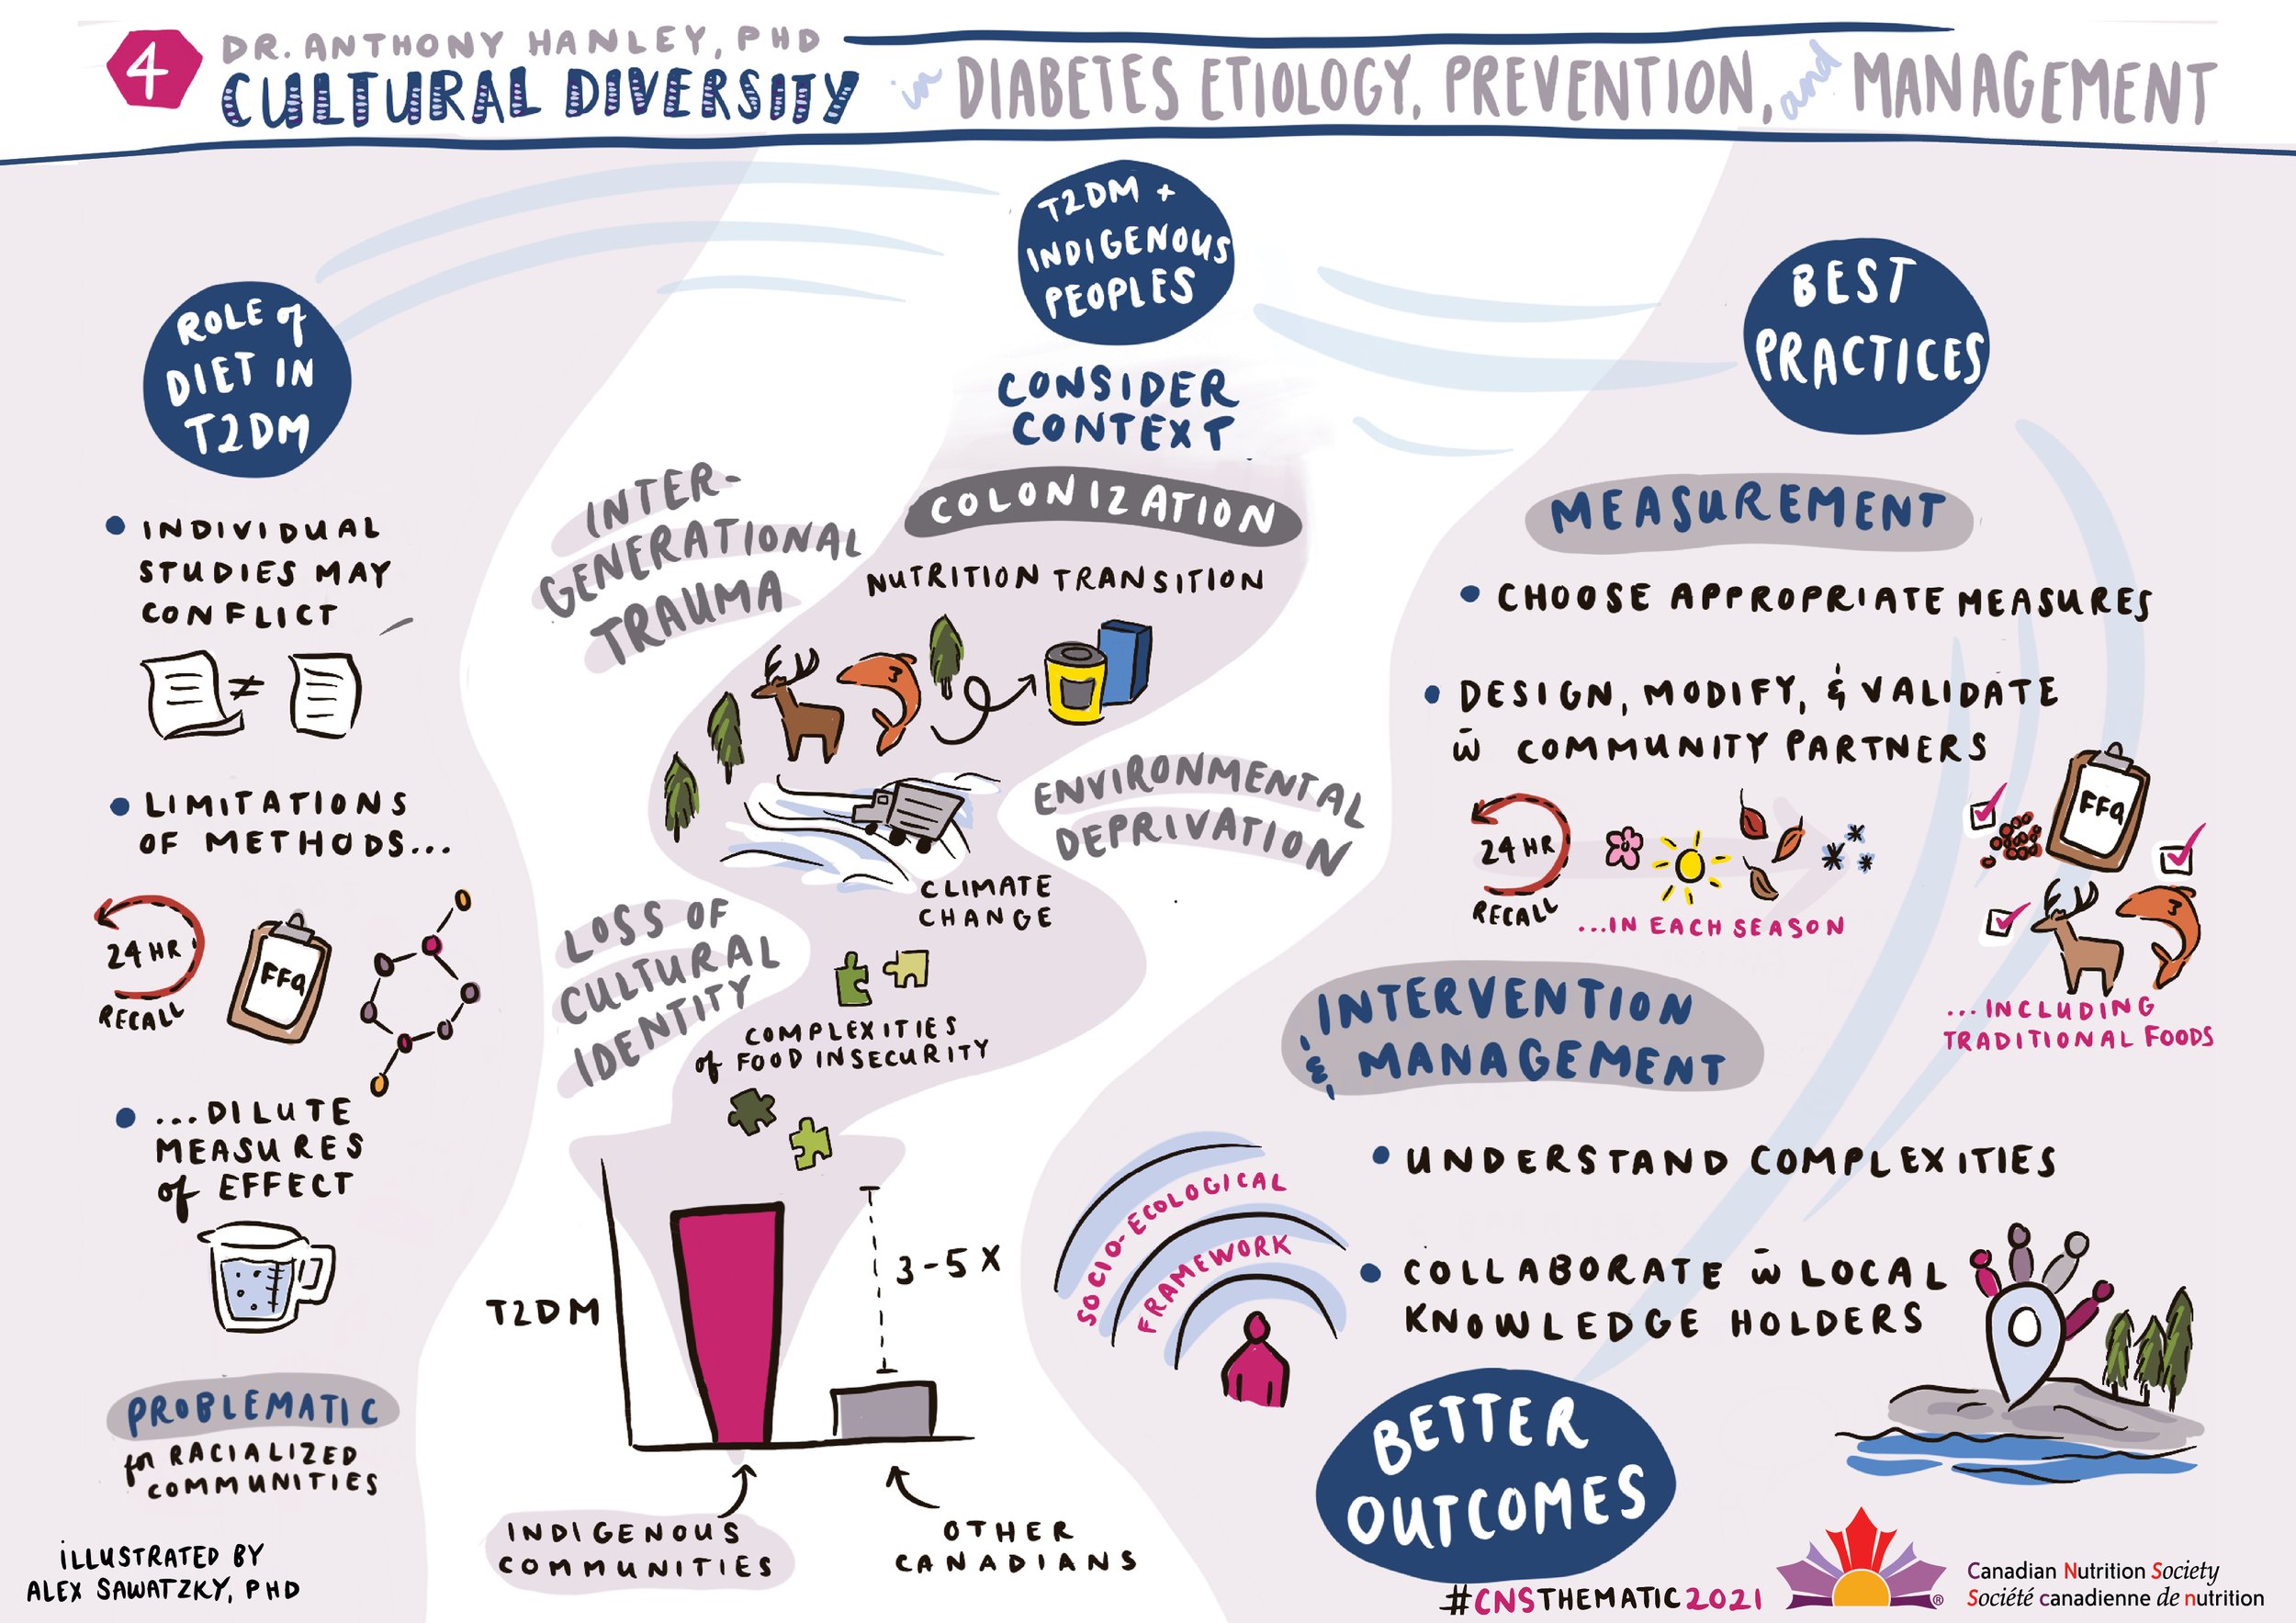 4
DR. ANTHONY HANLEY, PHD
CULTURAL DIVERSITY in DIABETES ETIOLOGY, PREVENTION, and MANAGEMENT
ROLE of
DIET IN
T2DM
• INDIVIDUAL
STUDIES MAY
CONFLICT
≠
• LIMITATIONS
OF METHODS...
24 HR
RECALL
FFQ
• ...DILUTE
MEASURES
of EFFECT
PROBLEMATIC
for RACIALIZED
COMMUNITIES
ILLUSTRATED BY
ALEX SAWATZKY, PHD
T2DM +
INDIGENOUS
PEOPLES
CONSIDER
CONTEXT
COLONIZATION
INTER-
GENERATIONAL
TRAUMA
NUTRITION TRANSITION
ENVIRONMENTAL
DEPRIVATION
CLIMATE
CHANGE
LOSS OF
CULTURAL
IDENTITY
COMPLEXITIES
of FOOD INSECURITY
T2DM
3-5 X
INDIGENOUS
COMMUNITIES
OTHER
CANADIANS
BEST
PRACTICES
MEASUREMENT
• CHOOSE APPROPRIATE MEASURES
• DESIGN, MODIFY, & VALIDATE
w̄ COMMUNITY PARTNERS
24 HR
RECALL
...IN EACH SEASON
FFQ
...INCLUDING
TRADITIONAL FOODS
INTERVENTION
& MANAGEMENT
• UNDERSTAND COMPLEXITIES
SOCIO-ECOLOGICAL
FRAMEWORK
• COLLABORATE w̄ LOCAL
KNOWLEDGE HOLDERS
BETTER
OUTCOMES
#CNSTHEMATIC2021
®
Canadian Nutrition Society
Société canadienne de nutrition